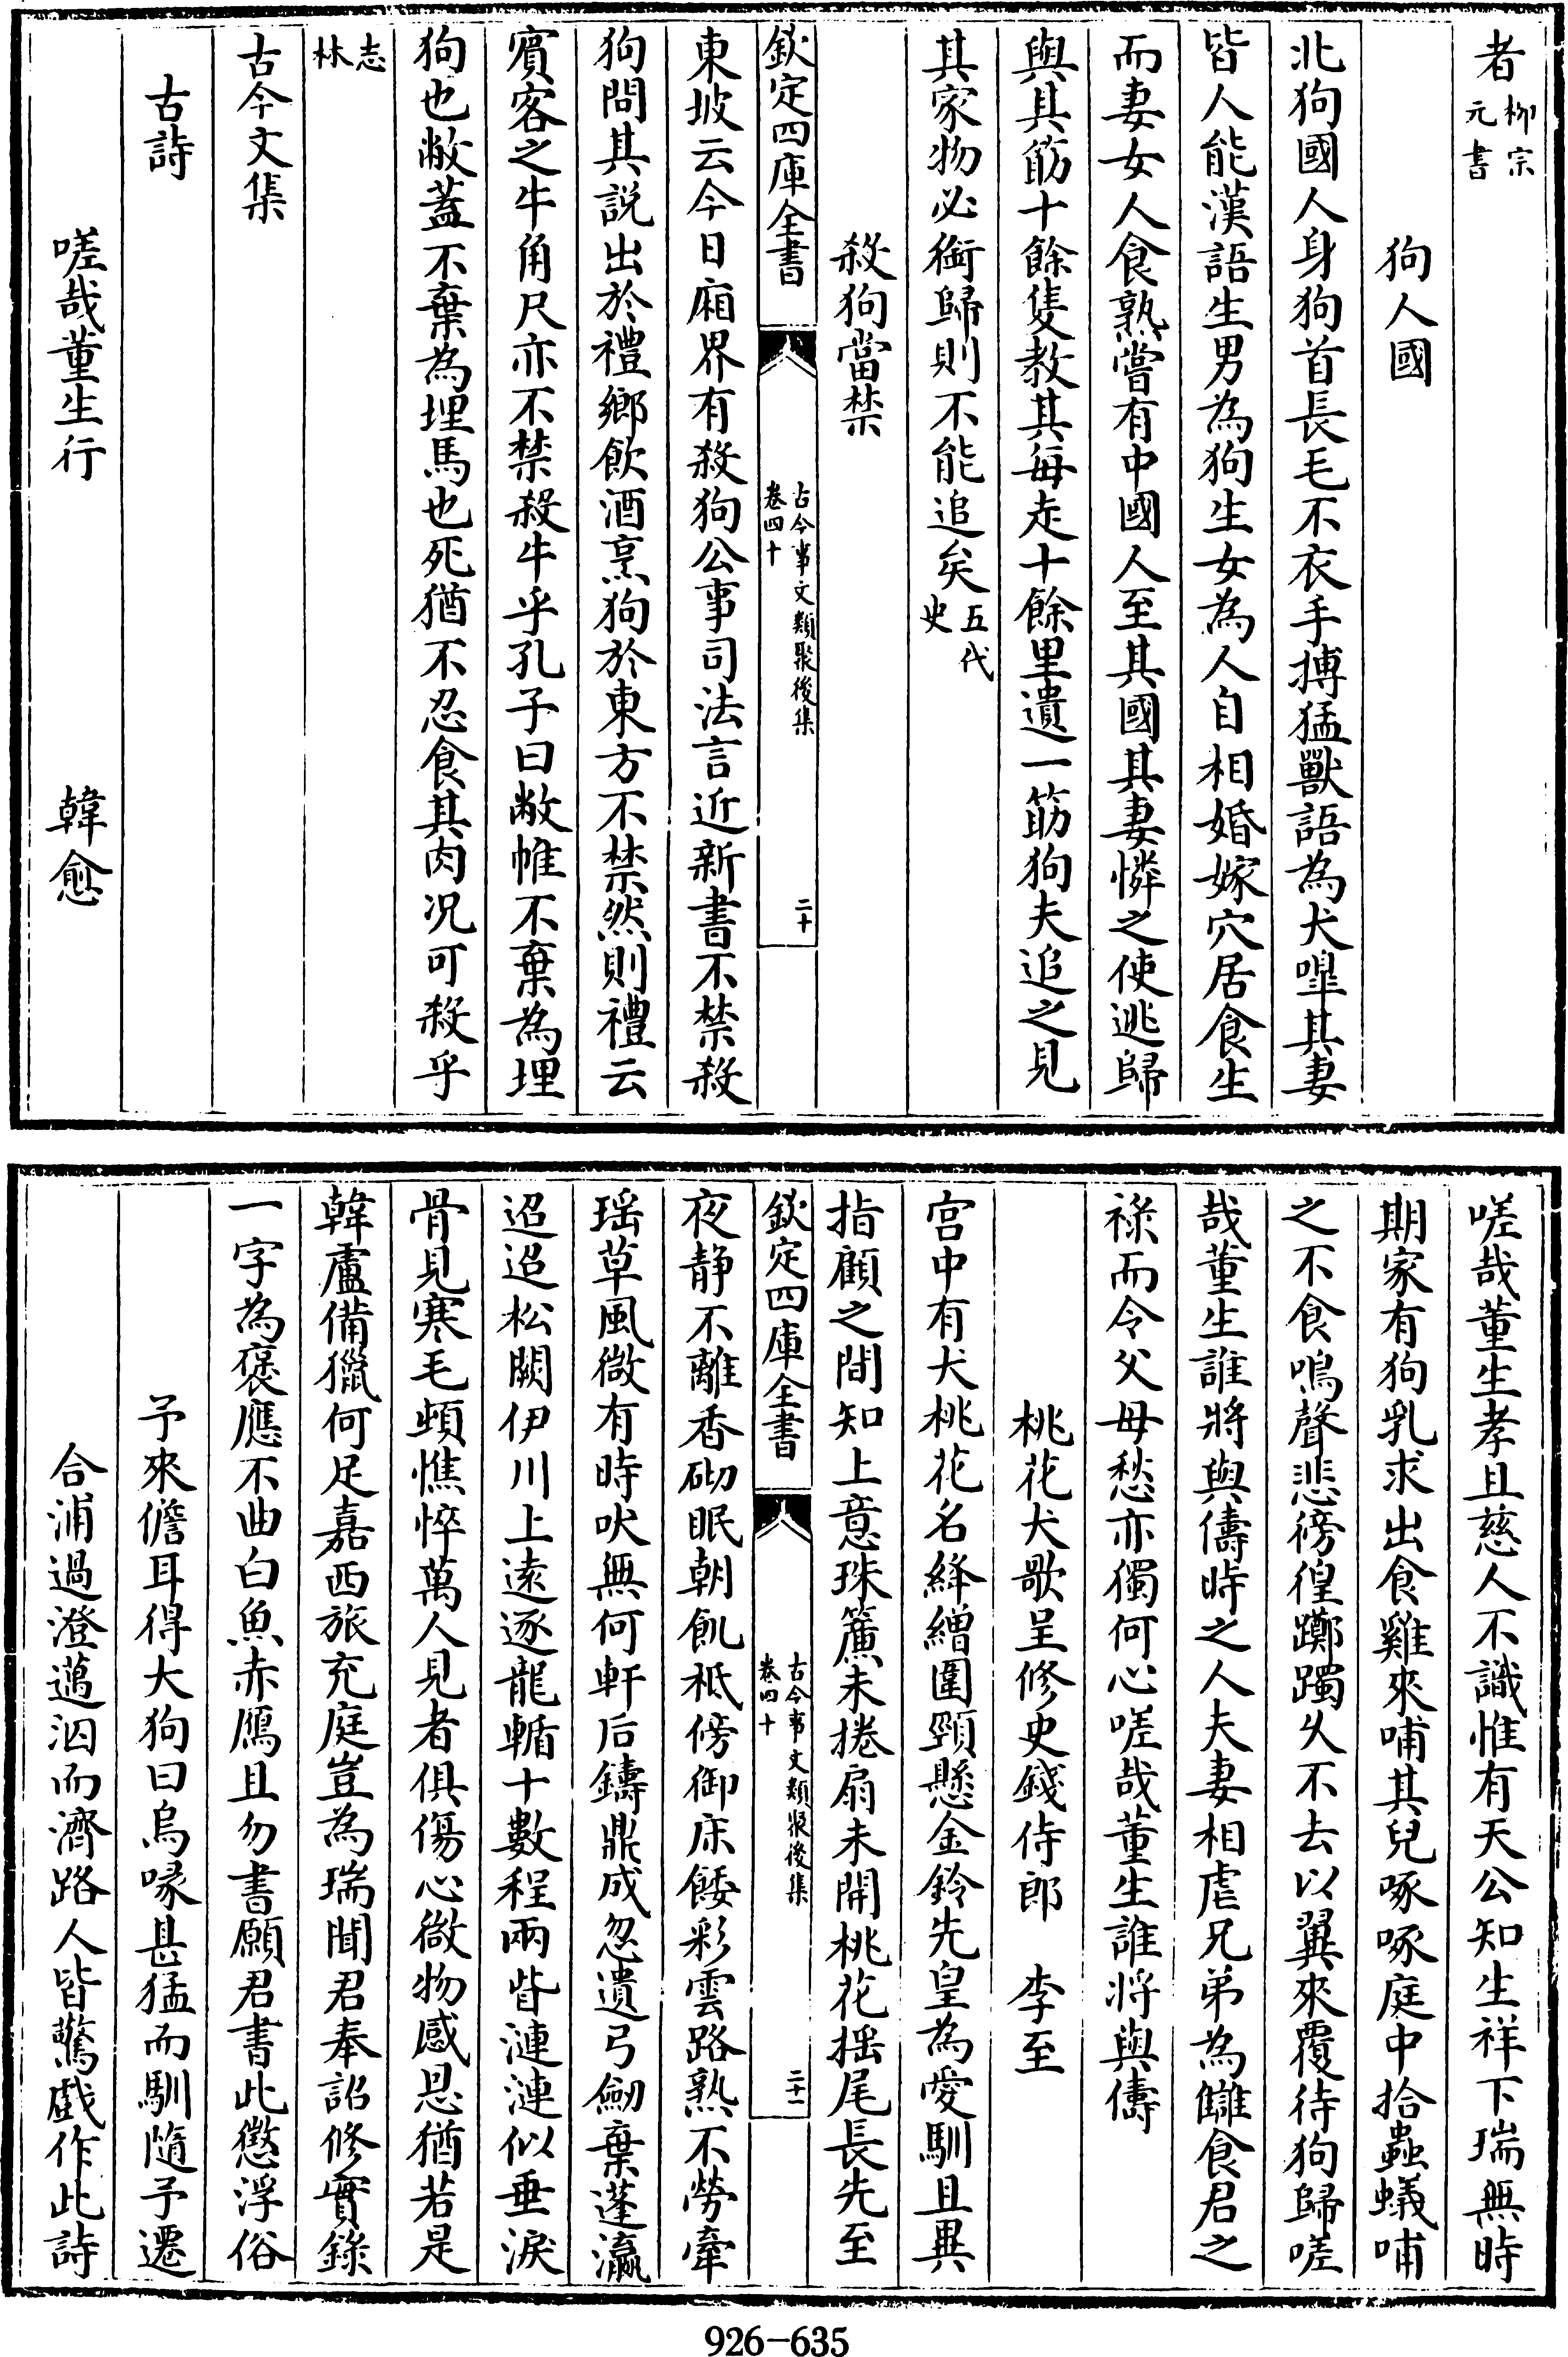 者柳宗元書
狗人國
北狗國人身狗首長毛不衣手搏猛獸語為犬嘷其妻
皆人能漢語生男為狗生女為人自相婚嫁穴居食生
而妻女人食熟嘗有中國人至其國其妻憐之使逃歸
與其筯十餘隻教其每走十餘里遺一筯狗夫追之見
其家物必銜歸則不能追矣五代史
殺狗當禁
欽定四庫全書
古今事文類聚後集
卷四十
二十
東坡云今日廂界有殺狗公事司法言近新書不禁殺
狗問其説出於禮鄉飲酒烹狗於東方不禁然則禮云
賓客之牛角尺亦不禁殺牛乎孔子曰敝帷不棄為埋
狗也敝蓋不棄為埋馬也死猶不忍食其肉况可殺乎
志林
古今文集
古詩
嗟哉董生行
韓愈
嗟哉董生孝且慈人不識惟有天公知生祥下瑞無時
期家有狗乳求出食雞來哺其兒啄啄庭中拾蟲蟻哺
之不食鳴聲悲徬徨躑躅久不去以翼來覆待狗歸嗟
哉董生誰將與儔時之人夫妻相虐兄弟為讎食君之
祿而令父母愁亦獨何心嗟哉董生誰將與儔
桃花犬歌呈修史錢侍郎
李至
宮中有犬桃花名絳繒圍頸懸金鈴先皇為愛馴且異
指顧之間知上意珠簾未捲扇未開桃花揺尾長先至
欽定四庫全書
古今事文類聚後集
卷四十
二十一
夜静不離香砌眠朝飢秪傍御床餧彩雲路熟不勞牽
瑶草風微有時吠無何軒后鑄鼎成忽遺弓劒棄蓬瀛
迢迢松闕伊川上遠逐龍輴十數程兩眥漣漣似垂淚
骨見寒毛頓憔悴萬人見者俱傷心微物感恩猶若是
韓盧備獵何足嘉西旅充庭豈為瑞聞君奉詔修實錄
一字為褒應不曲白魚赤鴈且勿書願君書此懲浮俗
予來儋耳得大狗曰烏喙甚猛而馴隨予遷
合浦過澄邁泅而濟路人皆驚戲作此詩
926-635